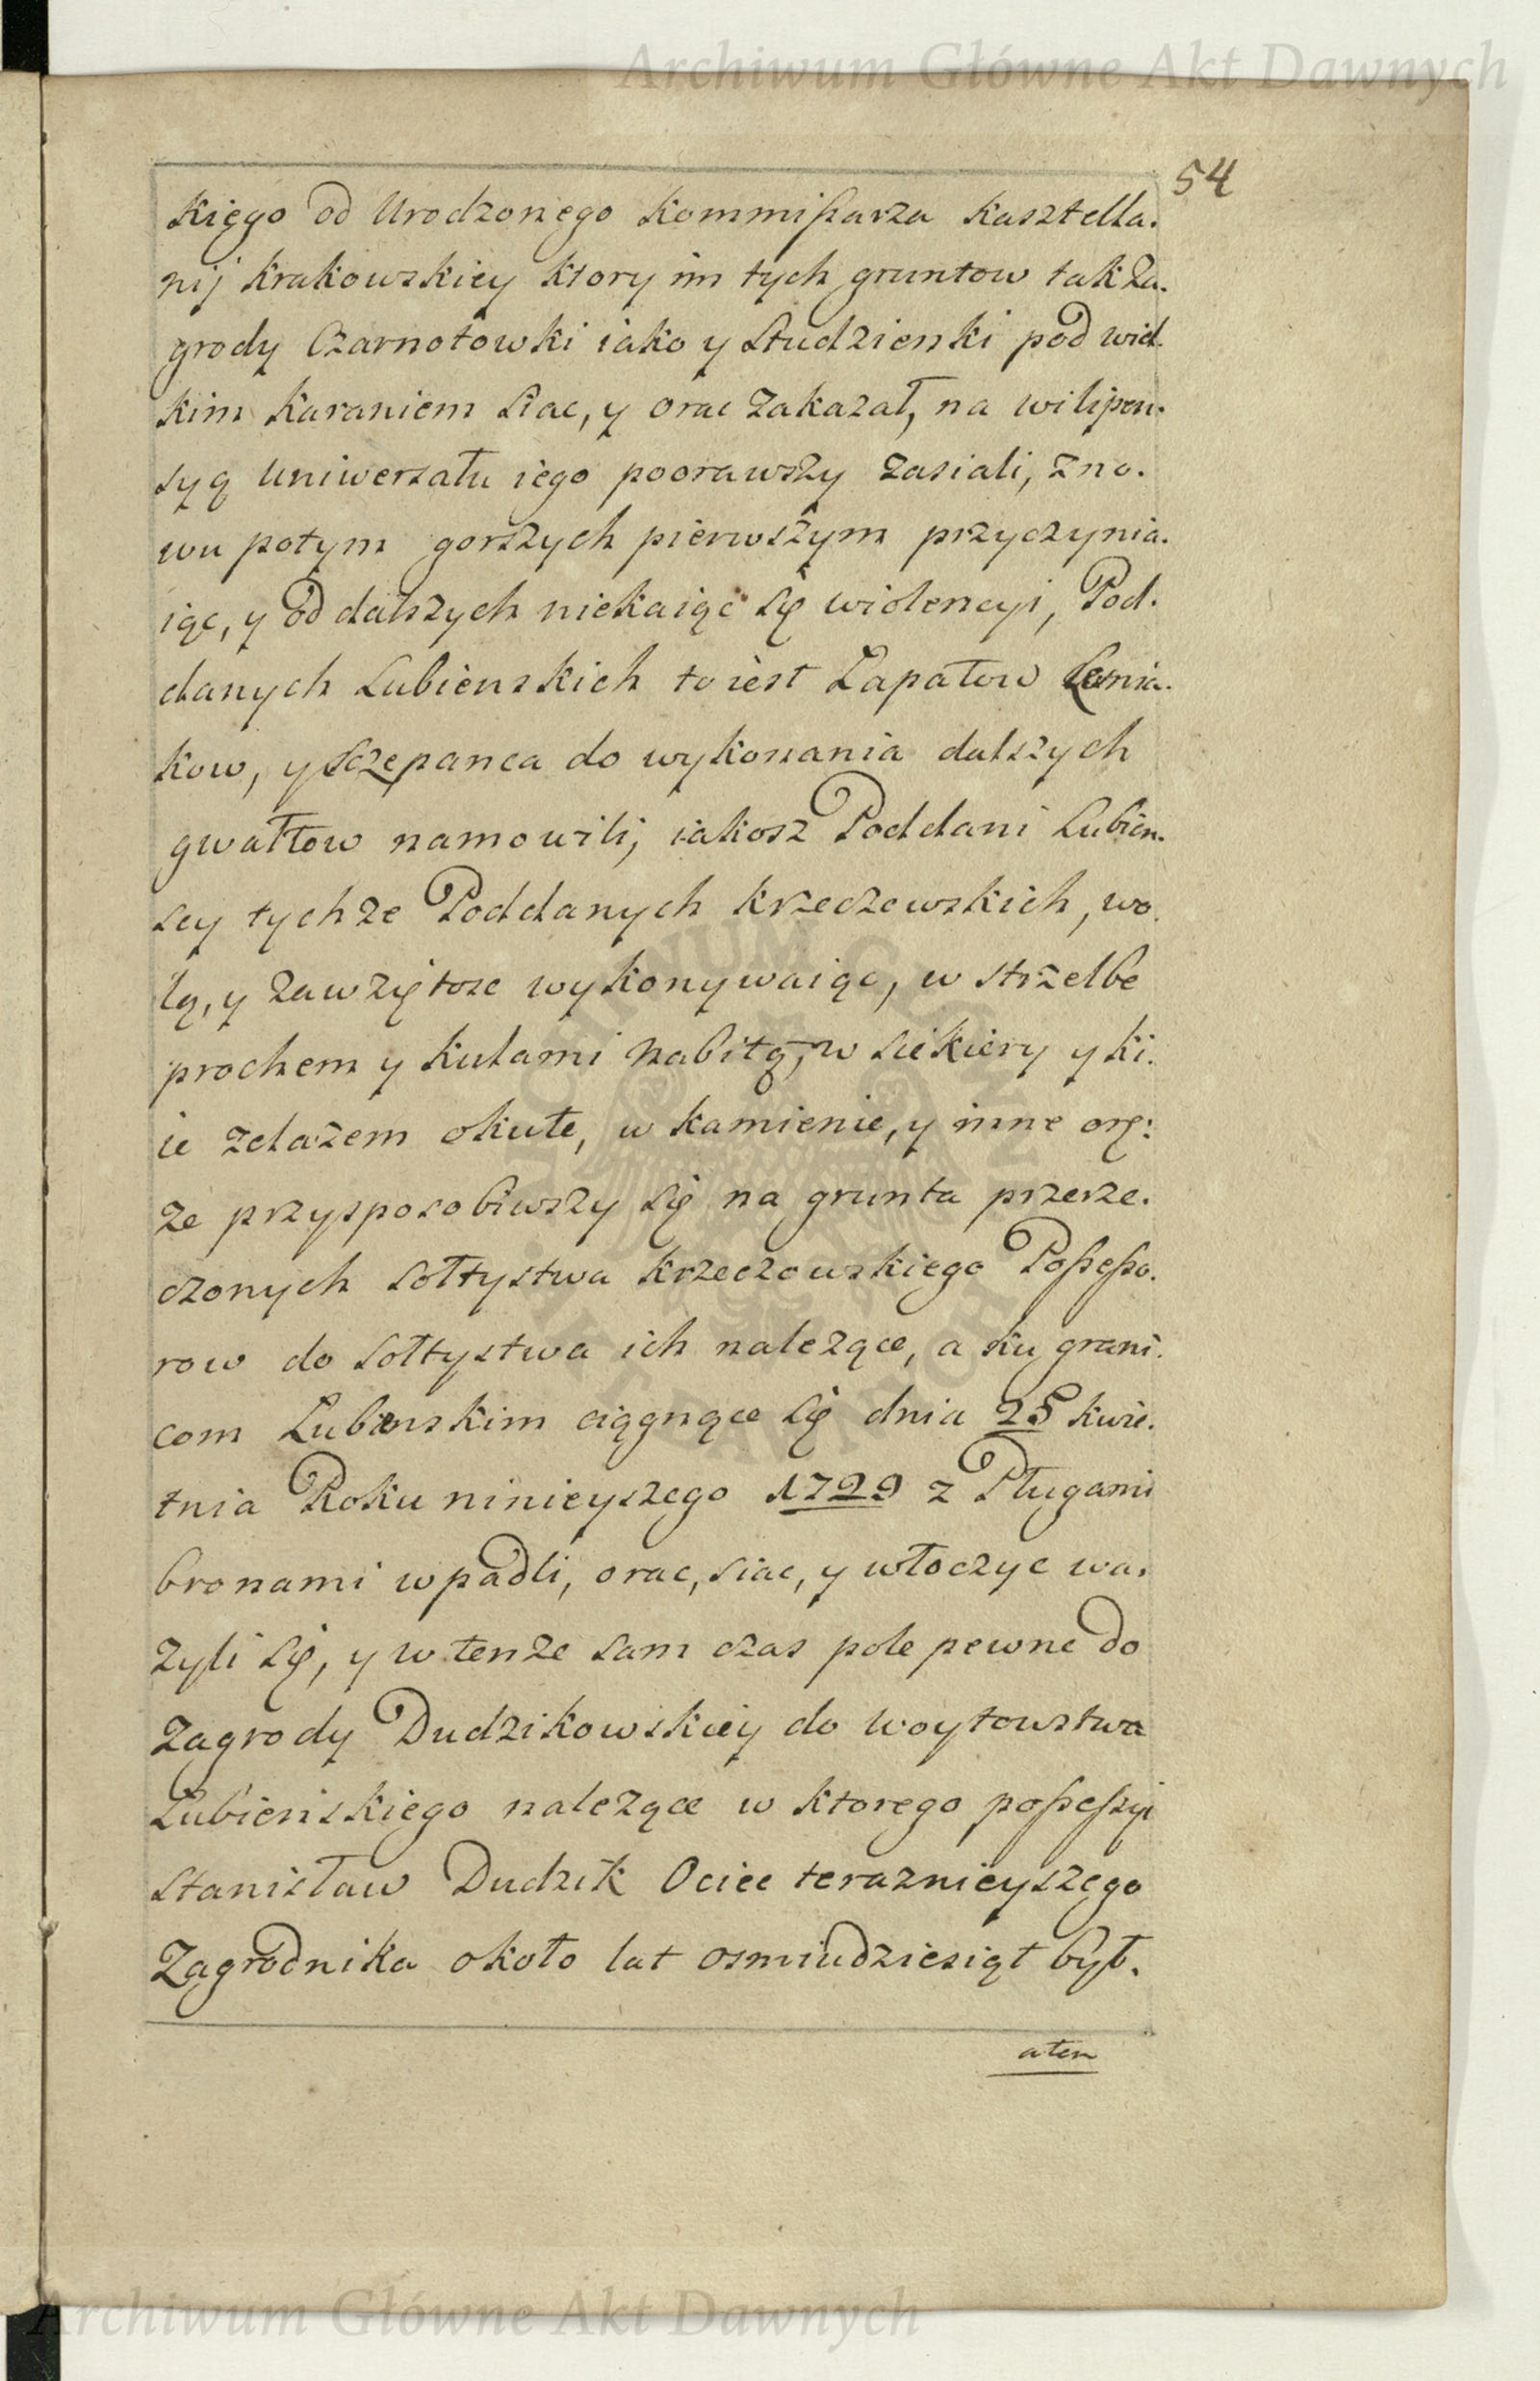 Archiwum Główne Akt Dawnych
54
kiego od Urodzonego Kommißarza Kasztella.
nij Krakowskiey ktory im tych gruntow tak Za.
grody Czarnotowki iako y Studzienki pod wiel.
kim karaniem siac, y orac zakazał, na wilipen.
syą Uniwersału iego poorawszy zasiali, zno.
wu potym gorszych pierwszym przyczynia.
iąc, y od dalszych niekaiąc się wiolencyi, Pod.
danych Lubienskich to iest Łapałow
kow, y Sczepanca do wykonania dalszych
gwałtow namowili, iakosz Poddani Lubien.
scy tychze Poddanych Krzeczowskich, wo.
lą, y zawziętosc wykonywaiąc, w strzelbe
prochem y kulami nabitą, w siekiery y ki.
ie zelazem okute, w kamienie, y inne orę:
ze przysposobiwszy się na grunta przerze.
czonych Sołtystwa Krzeczowskiego Poßeßo.
row do Sołtystwa ich nalezące, a ku grani.
com Lubenskim ciągnące się dnia 25 kwie.
tnia Roku ninieyszego 1729 z Pługami
bronami wpadli, orac, siac, y włoczyc wa.
zyli się, y w tenze sam czas pole pewne do
Zagrody Dudzikowskiey do Woytowstwa
Lubienskiego nalezące w ktorego poßeßyi
Stanisław Dudzik Ociec teraznieyszego
Zagrodnika około lat osmiudziesiąt był.
aten
ARCHIWUM GŁÓWNE AKT DAWNYCH
Archiwum Główne Akt Dawnych